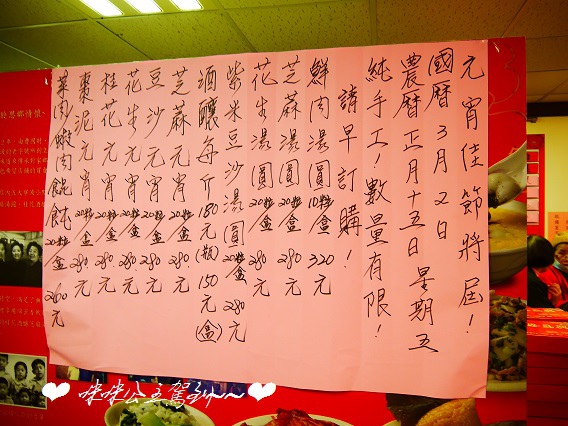 元宵佳節將屆!
國曆3月2日
農曆正月十五日星期五
純手工!數量有限!
請早訂購!
鮮肉湯圓10粒/盒320元
芝蔴湯圓20粒/盒280元
花生湯圓20粒/盒280元
紫米豆沙湯圓20粒/盒280元
酒釀每斤180元(瓶)150元(盒)
芝蔴元宵20粒/盒280元
豆沙元宵20粒/盒280元
花生元宵20粒/盒280元
桂花元宵20粒/盒280元
棗泥元宵20粒/盒280元
菜肉蝦肉餛飩20粒/盒260元
咪咪公主駕到~~